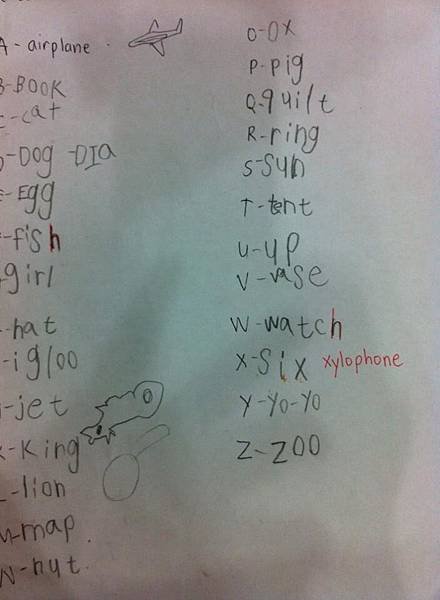 A - airplane
B-BOOK
C-cat
D-DOG -DIA
E-Egg
F-fish
girl
-hat
-igloo
j-jet
K-King
L-lion
M-map.
N-nut.
O-OX
P-pig
Q-quilt
R-ring
S-sun
T-tent
U-up
V-vase
W-watch
X-Six xylophone
Y-Yo-Yo
Z-ZOO